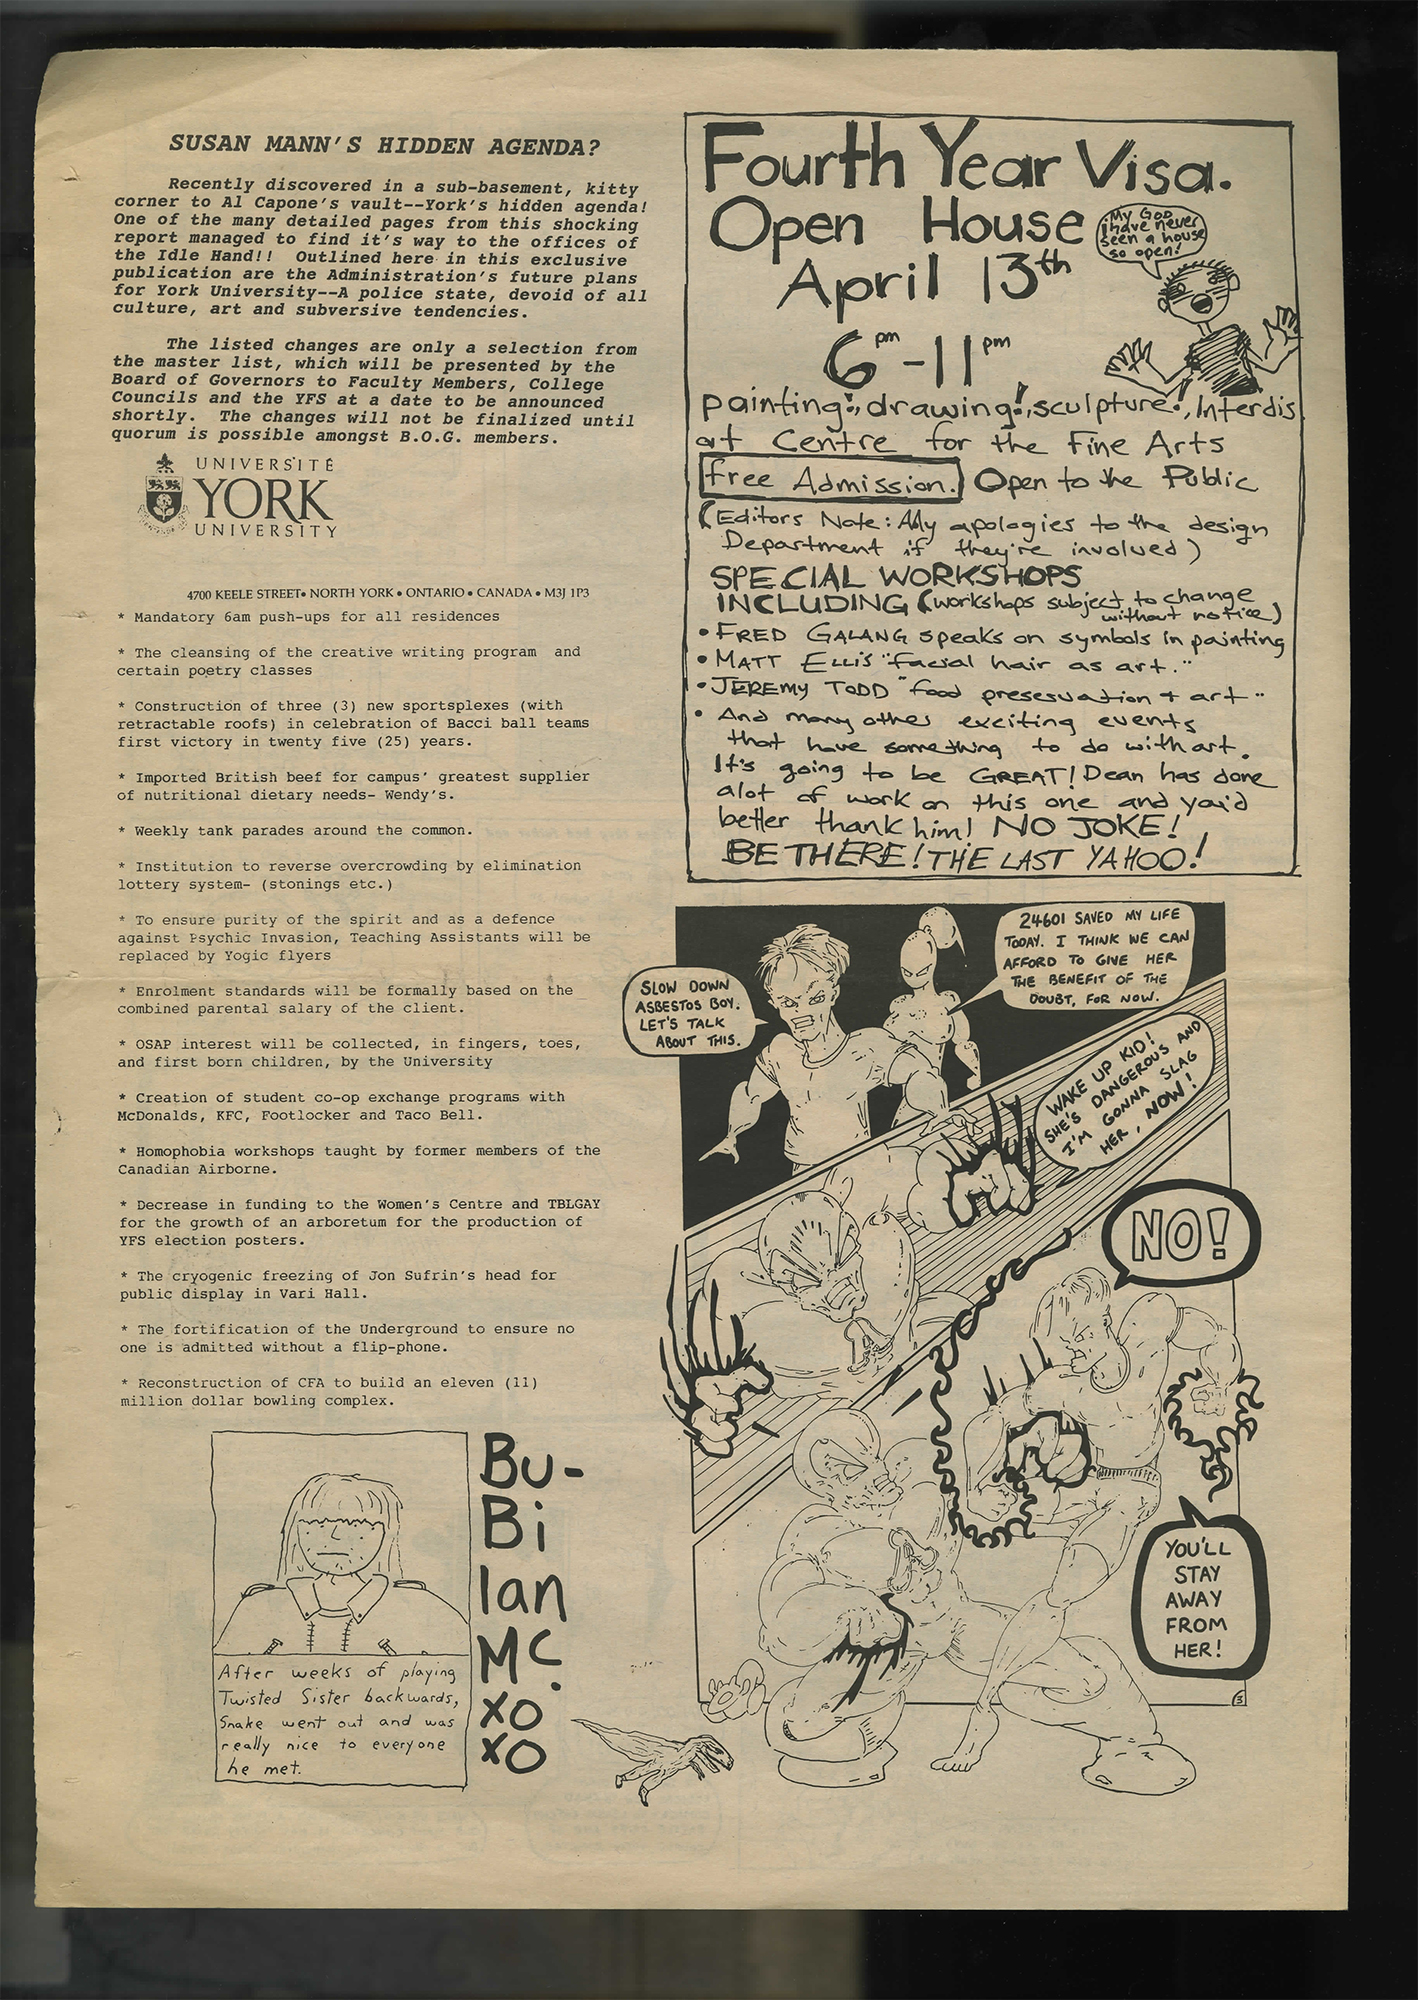 SUSAN MANN'S HIDDEN AGENDA?
Recently discovered in a sub-basement, kitty
corner to Al Capone's vault--York's hidden agenda!
One of the many detailed pages from this shocking
report managed to find it's way to the offices of
the Idle Hand!! Outlined here in this exclusive
publication are the Administration's future plans
for York University--A police state, devoid of all
culture, art and subversive tendencies.
The listed changes are only a selection from
the master list, which will be presented by the
Board of Governors to Faculty Members, College
Councils and the YFS at a date to be announced
shortly. The changes will not be finalized until
quorum is possible amongst B.O.G. members.
UNIVERSITÉ
YORK
UNIVERSITY
4700 KEELE STREET• NORTH YORK • ONTARIO • CANADA • M3J 1P3
* Mandatory 6am push-ups for all residences
* The cleansing of the creative writing program and
certain poetry classes
* Construction of three (3) new sportsplexes (with
retractable roofs) in celebration of Bacci ball teams
first victory in twenty five (25) years.
* Imported British beef for campus' greatest supplier
of nutritional dietary needs- Wendy's.
* Weekly tank parades around the common.
* Institution to reverse overcrowding by elimination
lottery system- (stonings etc.)
* To ensure purity of the spirit and as a defence
against Psychic Invasion, Teaching Assistants will be
replaced by Yogic flyers
* Enrolment standards will be formally based on the
combined parental salary of the client.
* OSAP interest will be collected, in fingers, toes,
and first born children, by the University
* Creation of student co-op exchange programs with
McDonalds, KFC, Footlocker and Taco Bell.
* Homophobia workshops taught by former members of the
Canadian Airborne.
* Decrease in funding to the Women's Centre and TBLGAY
for the growth of an arboretum for the production of
YFS election posters.
* The cryogenic freezing of Jon Sufrin's head for
public display in Vari Hall.
* The fortification of the Underground to ensure no
one is admitted without a flip-phone.
* Reconstruction of CFA to build an eleven (11)
million dollar bowling complex.
After weeks of playing
Twisted Sister backwards,
Snake went out and was
really nice to everyone
he met.
Bu-
Bi
Ian
Mc.
XO
XO
Fourth Year Visa.
Open House
My God
i have never
seen a house
so open!
April 13th
6pm - 11pm
painting!, drawing!, sculpture!, Interdis.
at Centre for the Fine Arts
free Admission. Open to the Public
(Editors Note: My apologies to the design
Department if they're involved)
SPECIAL WORKSHOPS
INCLUDING (workshops subject to change
without notice)
• FRED GALANG speaks on symbols in painting
• MATT ELLIS "facial hair as art."
• JEREMY TODD "food preservation + art"
• And many other exciting events
that have something to do with art.
It's going to be GREAT! Dean has done
alot of work on this one and you'd
better thank him! NO JOKE!
BE THERE! THE LAST YAHOO!
SLOW DOWN
ASBESTOS BOY.
LET'S TALK
ABOUT THIS.
24601 SAVED MY LIFE
TODAY. I THINK WE CAN
AFFORD TO GIVE HER
THE BENEFIT OF THE
DOUBT, FOR NOW.
WAKE UP KID!
SHE'S DANGEROUS AND
I'M GONNA SLAG
HER, NOW!
NO!
YOU'LL
STAY
AWAY
FROM
HER!
3